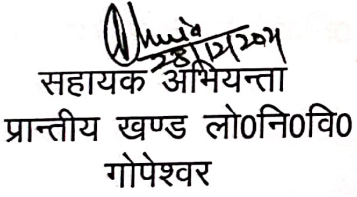 28/12/2021
सहायक अभियन्ता
प्रान्तीय खण्ड लो0नि0वि0
गोपेश्वर